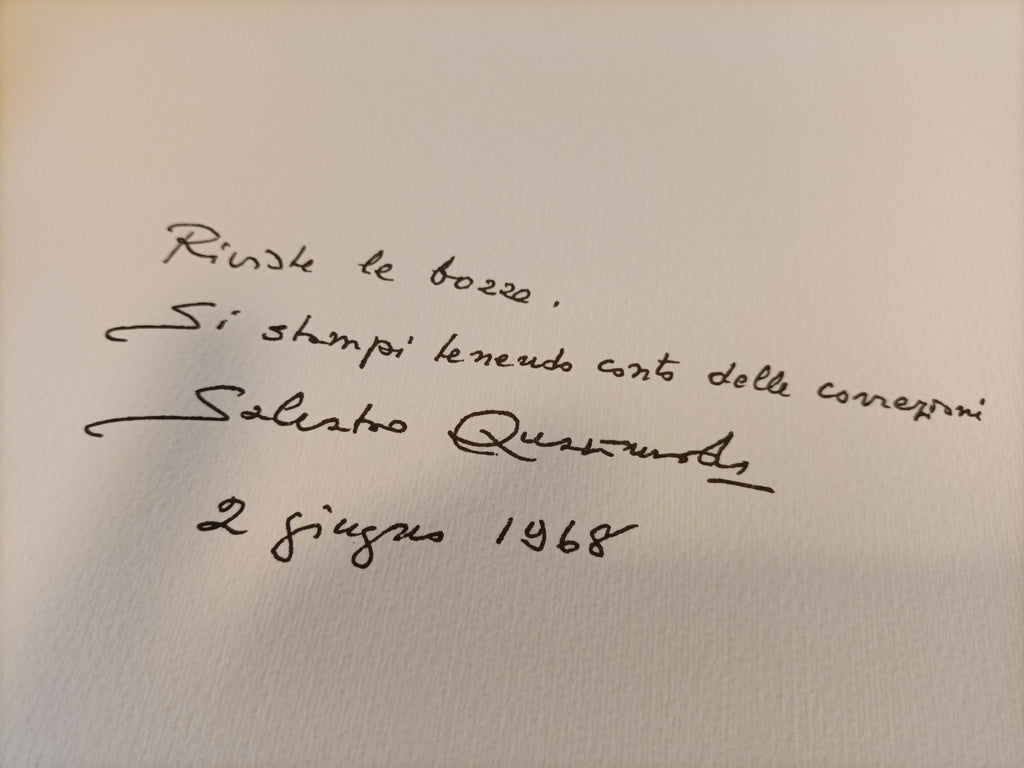 Riviste le bozze.
Si stampi tenendo conto delle correzioni
Salvatore Quasimodo
2 giugno 1968